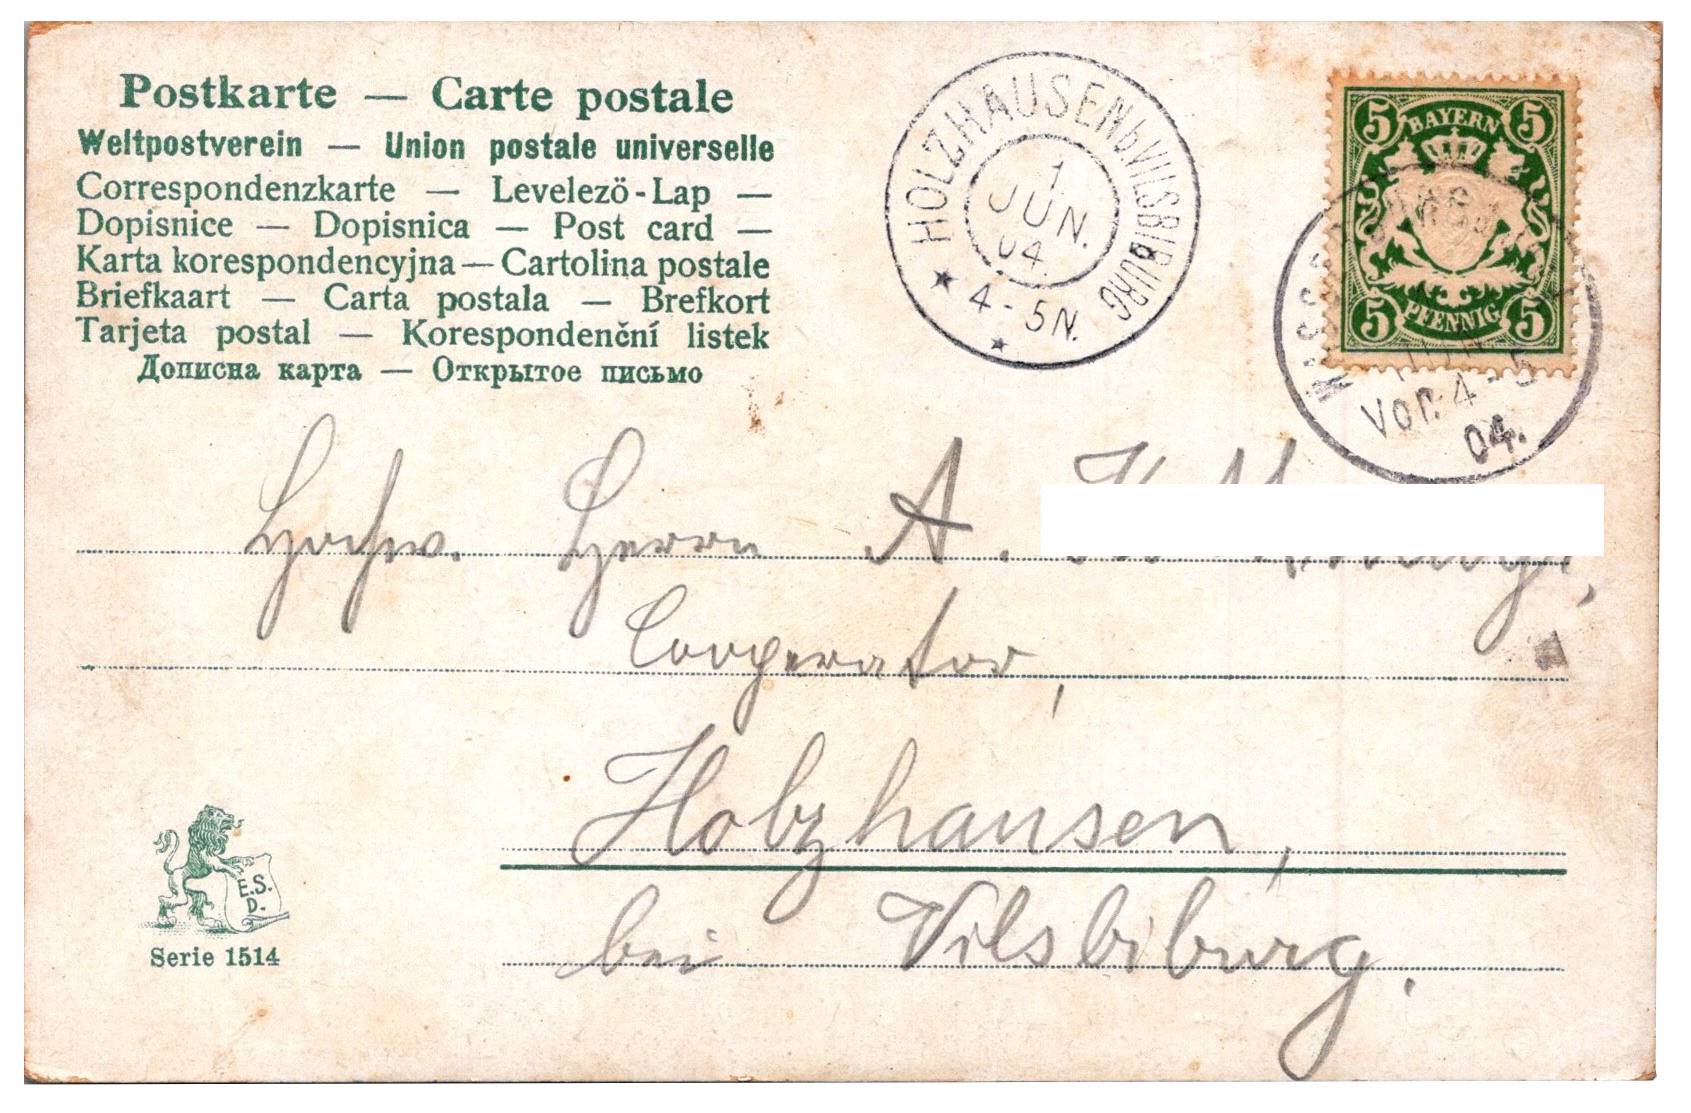 Postkarte — Carte postale
Weltpostverein — Union postale universelle
Correspondenzkarte — Levelezö-Lap —
Dopisnice — Dopisnica — Post card —
Karta korespondencyjna — Cartolina postale
Briefkaart — Carta postala — Brefkort
Tarjeta postal — Korespondenční listek
Дописна карта — Открытое письмо
HOLZHAUSEN b VILSBIBURG
1
JUN.
04.
4-5N.
5 BAYERN 5
5 PFENNIG 5
Vor. 4-5
04.
Hochw. Herrn A.
Cooperator,
Holzhausen,
bei Vilsbiburg.
E.S.
D.
Serie 1514